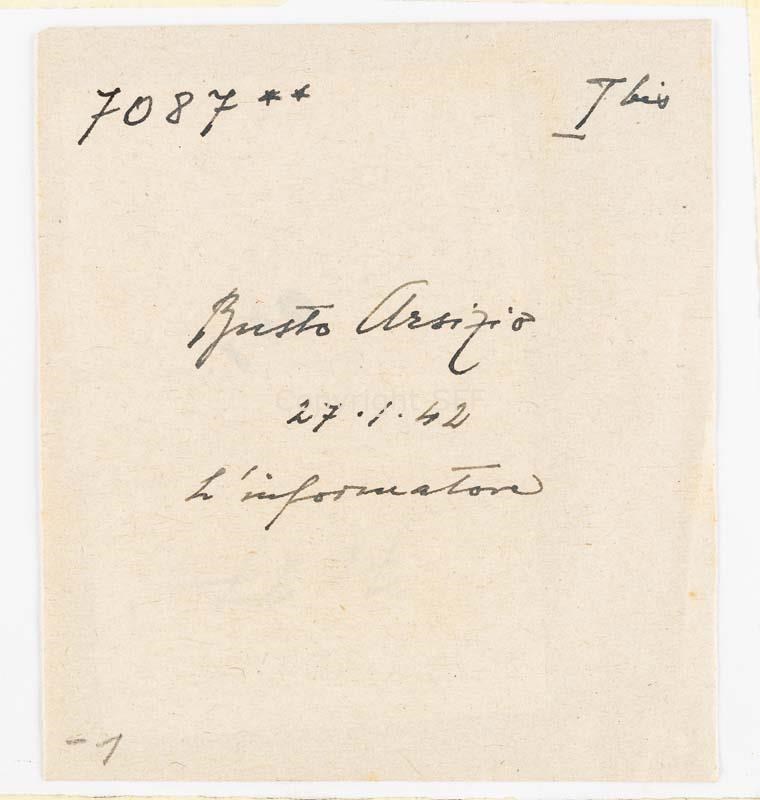 7087** I bis
Busto Arsizio
27.1.42
L'informatore
- 1